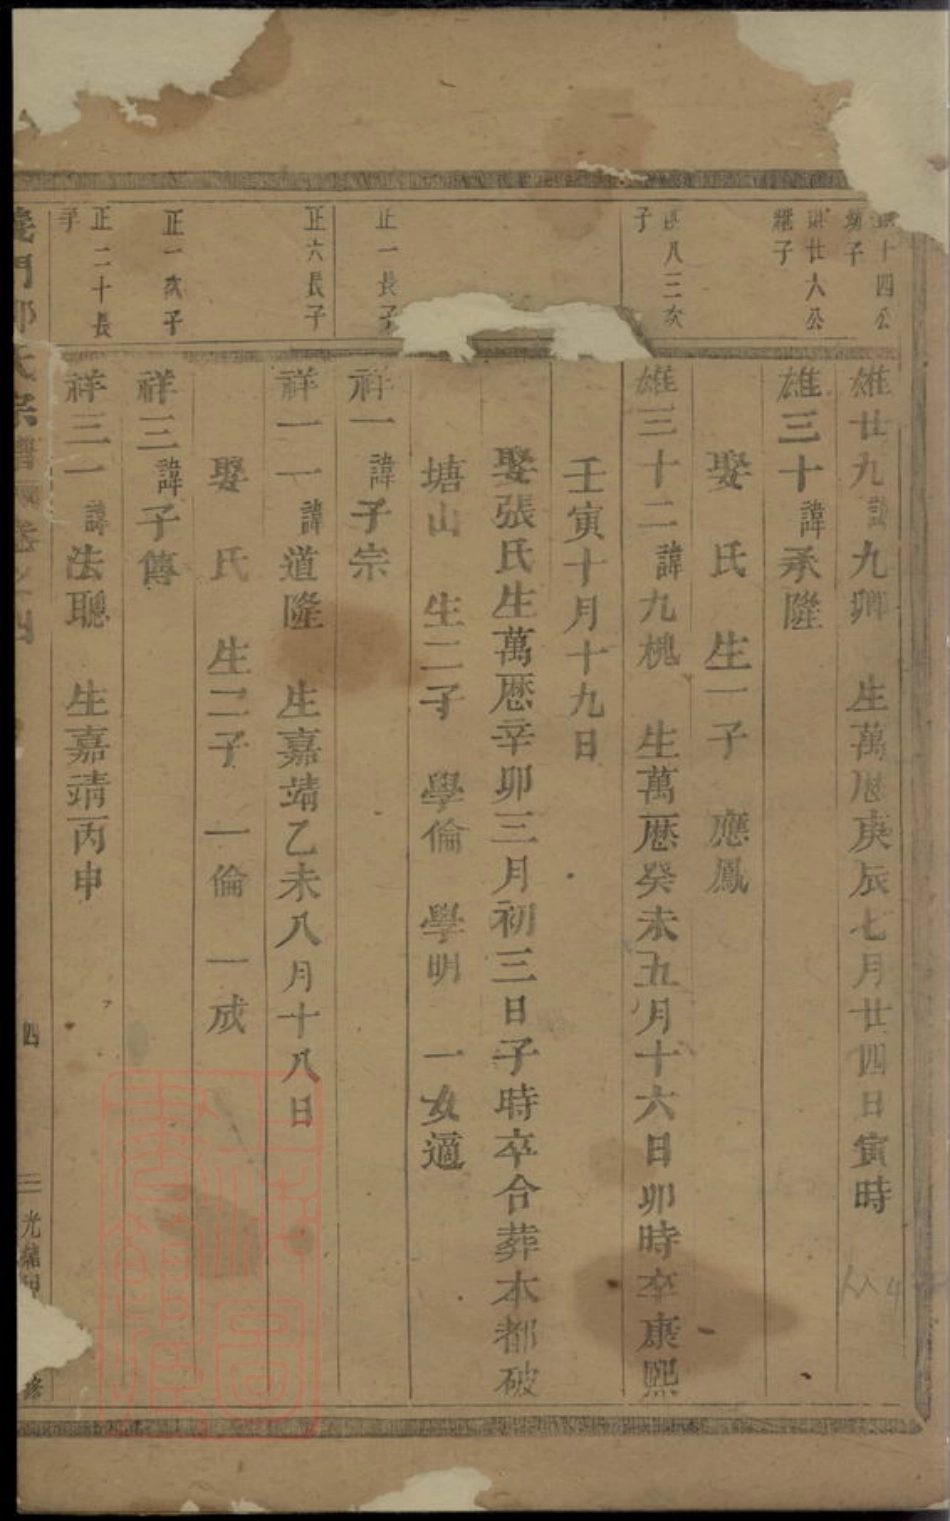 十四公
繼子
雄廿九諱九卿 生萬歷庚辰七月廿四日寅時
廿六公
繼子
雄三十諱承隆
娶 氏 生一子 應鳳
八三次
子
雄三十二諱九槐 生萬歷癸未五月十六日卯時卒康熙
壬寅十月十九日
娶張氏生萬歷辛卯三月初三日子時卒合葬本都破
塘山 生二子 學倫 學明 一女適
正一長子
祥一諱子宗
正六長子
祥一一諱道隆 生嘉靖乙未八月十八日
娶 氏 生二子 一倫 一成
正一次子
祥三諱子傳
正二十長
子
祥三一諱法聰 生嘉靖丙申
門 氏宗譜 卷之四
四
光緒
修